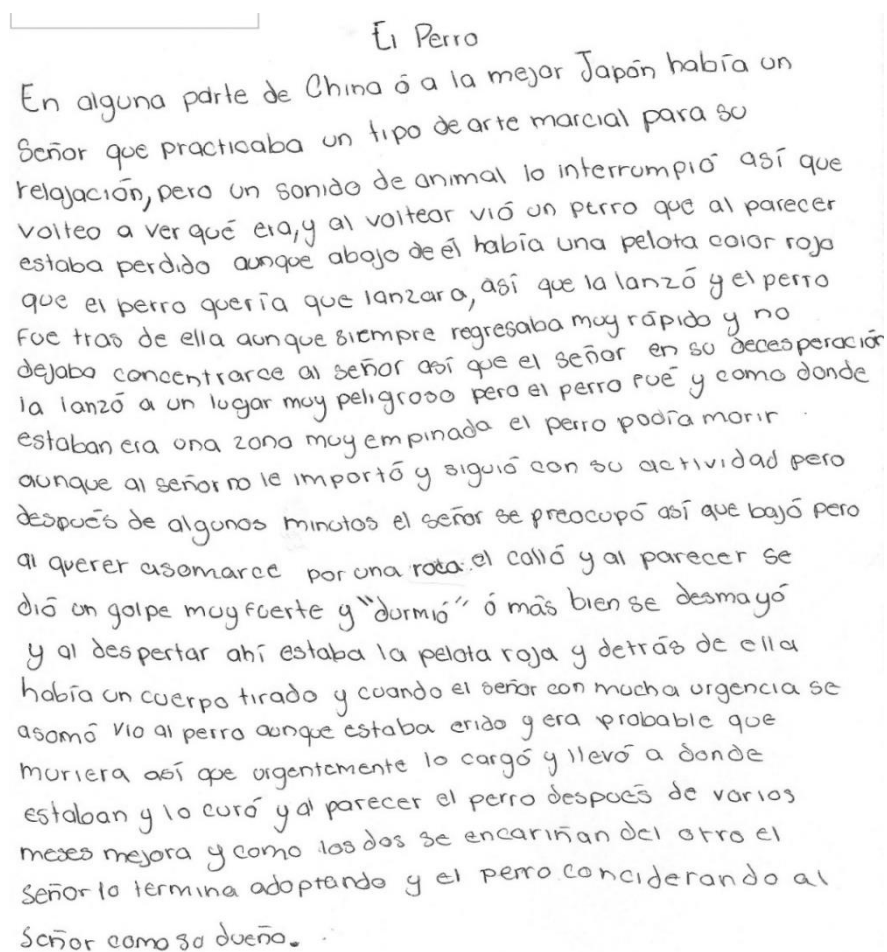 El Perro
En alguna parte de China ó a la mejor Japón había un
Señor que practicaba un tipo de arte marcial para su
relajación, pero un sonido de animal lo interrumpió así que
volteo a ver qué era, y al voltear vió un perro que al parecer
estaba perdido aunque abajo de él había una pelota color roja
que el perro quería que lanzara, así que la lanzó y el perro
fue tras de ella aunque siempre regresaba muy rápido y no
dejaba concentrarce al señor así que el señor en su decesperación
la lanzó a un lugar muy peligroso pero el perro fué y como donde
estaban era una zona muy empinada el perro podía morir
aunque al señor no le importó y siguió con su actividad pero
después de algunos minutos el señor se preocupó así que bajó pero
al querer asomarce por una roca el calló y al parecer se
dió un golpe muy fuerte y "durmió" ó más bien se desmayó
y al despertar ahí estaba la pelota roja y detrás de ella
había un cuerpo tirado y cuando el señor con mucha urgencia se
asomó vio al perro aunque estaba erido y era probable que
muriera así que urgentemente lo cargó y llevó a donde
estaban y lo curó y al parecer el perro después de varios
meses mejora y como los dos se encariñan del otro el
señor lo termina adoptando y el perro conciderando al
señor como su dueño.